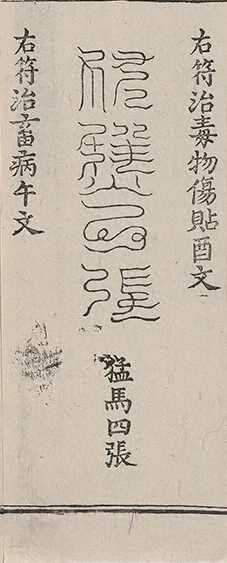 右符治毒物傷貼酉文
猛馬四張
右符治畜病午文